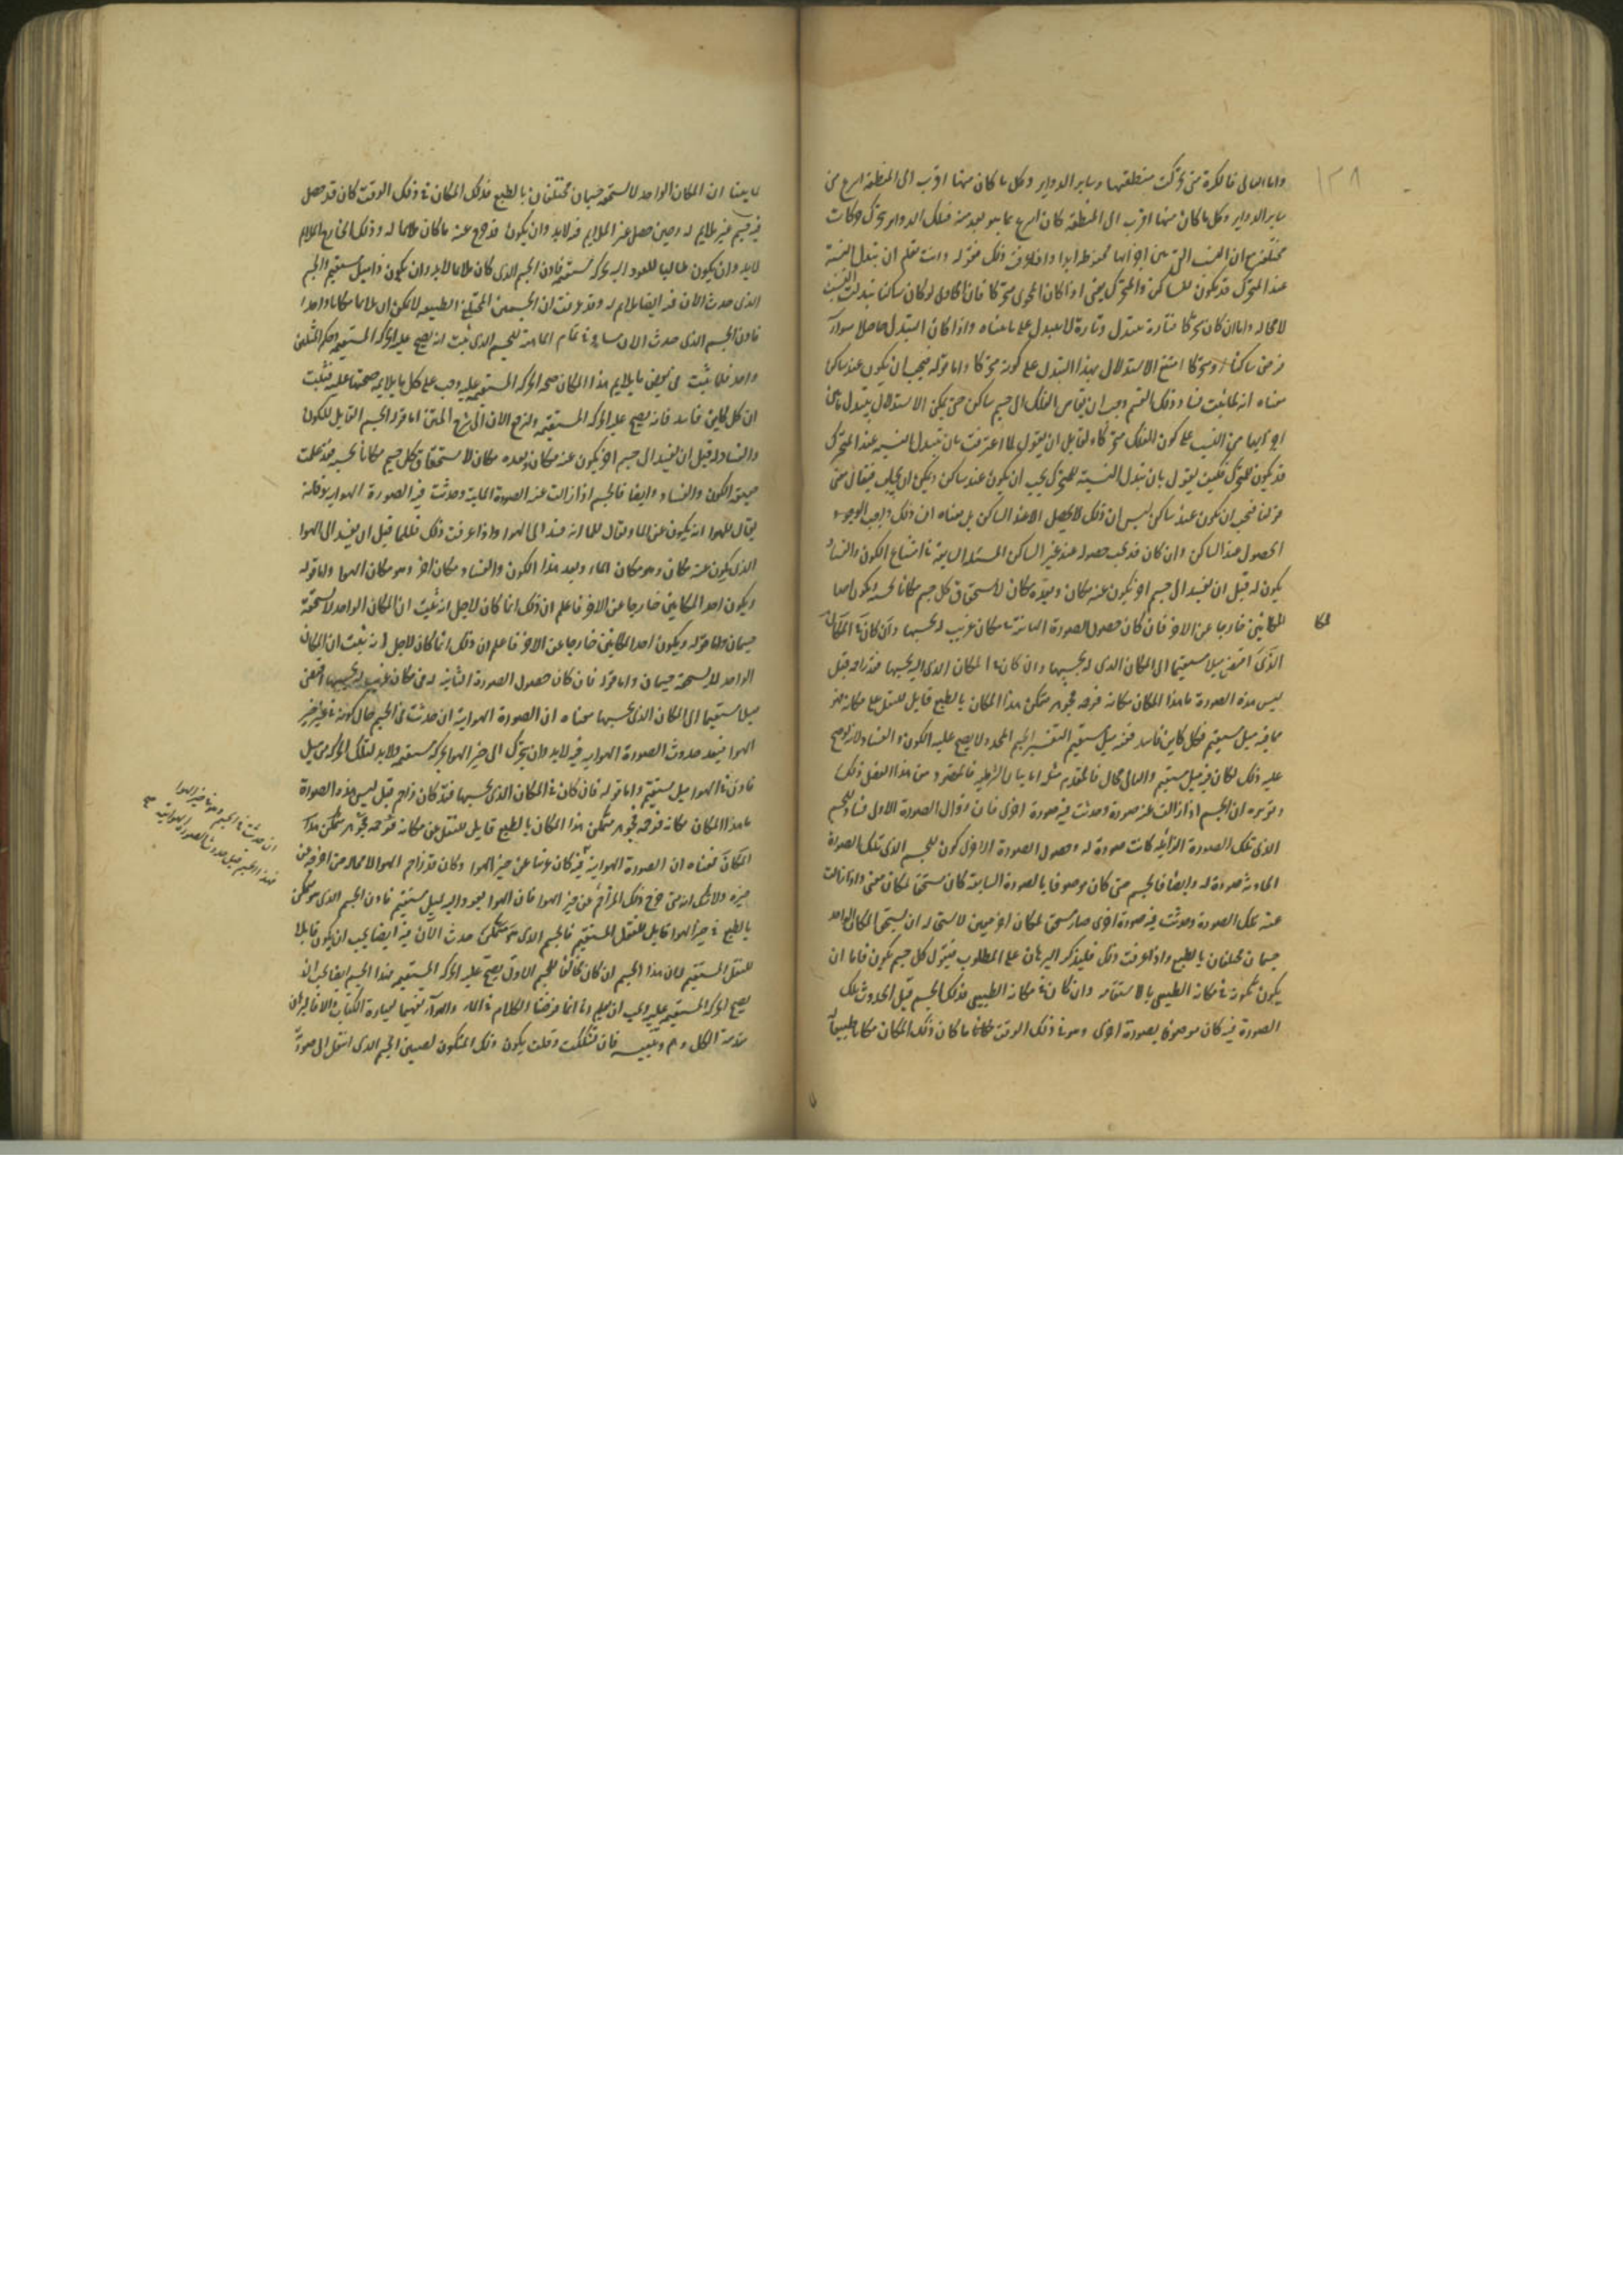 ١٣٨
واما الثانى فالكرة متى تحركت منطقتها وساير الدواير وكل ما كان منها اقرب الى المنطقة اسرع من
ساير الدواير وكل ما كان منها اقرب الى المنطقة كان اسرع مما هو بعد منه فتلك الدواير تتحرك حركات
مختلفة مع ان النسب التى بين اجزائها محفوظة ابدا واختلاف ذلك فقوله وانت تعلم ان تبدل النسبة
عند المتحرك قد يكون للساكن والمتحرك يعنى اذا كان المحوى متحركا فان الحاوى لو كان ساكنا تبدلت النسب
لا محالة واما ان كان متحركا فتارة تتبدل وتارة لا تتبدل على ما بيناه واذا كان التبدل حاصلا سواء
فرض ساكنا او متحركا امتنع الاستدلال بهذا التبدل على كونه متحركا واما قوله فيجب ان يكون عند ساكن
معناه انه لما ثبت فساد ذلك القسم وجب ان يقاس الفلك الى جسم ساكن حتى يمكن الاستدلال بتبدل ما بين
اجزائهما من النسب على كون الفلك متحركا ولقايل ان يقول لما اعترفت بان تبدل النسبة عند المتحرك
قد يكون للمتحرك فكيف يقول بان تبدل النسبة للمتحرك يجب ان يكون عند ساكن ويمكن ان يجاب فيقال معنى
قولنا فيجب ان يكون عند ساكن ليس ان ذلك لا يحصل الا عند الساكن بل معناه ان ذلك واجب الوجود
الحصول عند الساكن وان كان قد يجب حصوله عند غير الساكن المسئلة السابعة فى امتناع الكون والفساد
يكون له قبل ان يفسد الى جسم اخر يتكون عنه مكان وبعده مكان لاستحقاق كل جسم مكانا بحسبه ويكون احدا
المكانين خارجا عن الاخر فان كان حصول الصورة الثانية فى مكان غريب له بحسبها وان كان فى المكان
لمكا
الذى اقتضى ميلا مستقيما الى المكان الذى له بحسبها وان كان فى المكان الذى له بحسبها فقد زاحم قبل
لبس هذه الصورة ما هذا المكان مكانه فزحمه فجوهر متمكن هذا المكان بالطبع قابل للنقل عن مكانه فهو
مما فيه ميل مستقيم فكل كاين فاسد ففيه ميل مستقيم التفسير الجسم المحدد لا يصح عليه الكون والفساد لانه لو صح
عليه ذلك لكان فيه ميل مستقيم والتالى محال فالمقدم مثله اما بيان الشرطية فالمقصود من هذا الفصل ذلك
وتقريره ان الجسم اذا زالت عنه صورة وحدثت فيه صورة اخرى فان زوال الصورة الاولى فساد للجسم
الذى تلك الصورة الزايلة كانت صورة له وحصول الصورة الاخرى كون للجسم الذى تلك الصورة
الحادثة صورة له وايضا فالجسم متى كان موصوفا بالصورة السابقة كان مستحقا لمكان معين واذا زالت
عنه تلك الصورة وحدثت فيه صورة اخرى صار مستحقا لمكان اخر معين لاستحالة ان يستحق المكان الواحد
جسمان مختلفان بالطبع واذا عرفت ذلك فليذكر البرهان على المطلوب فيقول كل جسم يكون فاما ان
يكون تكونه فى مكانه الطبيعى بالاستقامة وان كان فى مكانه الطبيعى فذلك الجسم قبل الحدوث تلك
الصورة فيه كان موصوفا بصورة اخرى وهو فى ذلك الوقت فاما ما كان ذلك المكان مكانا طبيعيا
لما بينا ان المكان الواحد لا يستحقه جسمان مختلفان بالطبع فذلك المكان فى ذلك الوقت كان قد حصل
فيه جسم غير ملايم له وحين حصل غير الملايم فيه لابد وان يكون قد خرج عنه ما كان ملايما له وذلك الخارج الملايم
لابد وان يكون طالبا للعود اليه بحركة مستقيمة فاذن الجسم الذى كان ملايما لابد وان يكون ذا ميل مستقيم والجسم
الذى حدث الان فيه ايضا ملايم له وقد عرفت ان الجسمين المختلفى الطبيعة لا يمكن ان يلايما مكانا واحدا
فاذن الجسم الذى حدث الان مساو فى تمام الماهية للجسم الذى ثبت انه يصح عليه الحركة المستقيمة وحكم المثلين
واحد فلما ثبت فى بعض ما يلايم هذا المكان صحة الحركة المستقيمة عليه وجب على كل ما يلايمه صحتها عليه فثبت
ان كل كاين فاسد فانه يصح عليه الحركة المستقيمة ولنرجع الان الى شرح المتن اما قوله الجسم القابل للكون
والفساد له قبل ان يفسد الى جسم اخر يتكون عنه مكان وبعده مكان لاستحقاق كل جسم مكانا بحسبه فقد علمت
حقيقة الكون والفساد وايضا فالجسم اذا زالت عنه الصورة المائية وحدثت فيه الصورة الهوائية فانه
يقال للهواء انه يكون عن الماء ويقال للماء انه فسد الى الهواء واذا عرفت ذلك فللماء قبل ان يفسد الى الهوا
الذى يتكون عنه مكان وهو مكان الماء وبعد هذا الكون والفساد مكان اخر وهو مكان الهوا واما قوله
ويكون احد المكانين خارجا عن الاخر فاعلم ان ذلك انما كان لاجل انه ثبت ان المكان الواحد لا يستحقه
جسمان واما قوله ويكون احد المكانين خارجا عن الاخر فاعلم ان ذلك انما كان لاجل انه ثبت ان المكان
الواحد لا يستحقه جسمان واما قوله فان كان حصول الصورة الثانية له فى مكان غريب له بحسبها اقتضى
ميلا مستقيما الى المكان الذى بحسبها معناه ان الصورة الهوائية ان حدثت فى الجسم حال كونه فى غير حيز
الهوا فبعد حدوث الصورة الهوائية فيه لابد وان يتحرك الى حيز الهوا بحركة مستقيمة ولابد لتلك الحركة من ميل
فاذن فى الهوا ميل مستقيم واما قوله فان كان فى المكان الذى بحسبها فقد كان زاحم قبل لبس هذه الصورة
ما هذا المكان مكانه فزحمه فجوهر متمكن هذا المكان بالطبع قابل للنقل عن مكانه فزحمه فجوهر متمكن هذا
المكان معناه ان الصورة الهوائية فيه كان غريبا عن حيز الهوا وكان قد زاحم الهوا لا محالة حتى اخرجه من
حيزه ولا شك انه متى خرج ذلك المزاحم عن حيز الهوا فان الهوا يعود اليه بميل مستقيم فاذن الجسم الذى هو متمكن
بالطبع فى حيز الهوا قابل للنقل المستقيم فالجسم الذى هو متمكن حدث الان فيه ايضا يجب ان يكون قابلا
للنقل المستقيم لان هذا الجسم ان كان مخالفا للجسم الاول يصح عليه الحركة المستقيمة فهذا الجسم ايضا يجب ان
يصح الحركة المستقيمة عليه ويجب ان يعلم انا انما فرضنا الكلام فى الماء والهوآء تفهيما لعبارة الكتاب والا فالبرهان
مقدمة الكل وهم وتنبيه فان تشككت وقلت يكون ذلك المتكون لصيق الجسم الذى انتقل الى صورته
ان حدثت فى الجسم وهو فى حيز الهوا
فهذا الجسم قبل حدوث الصورة الهوائية صح